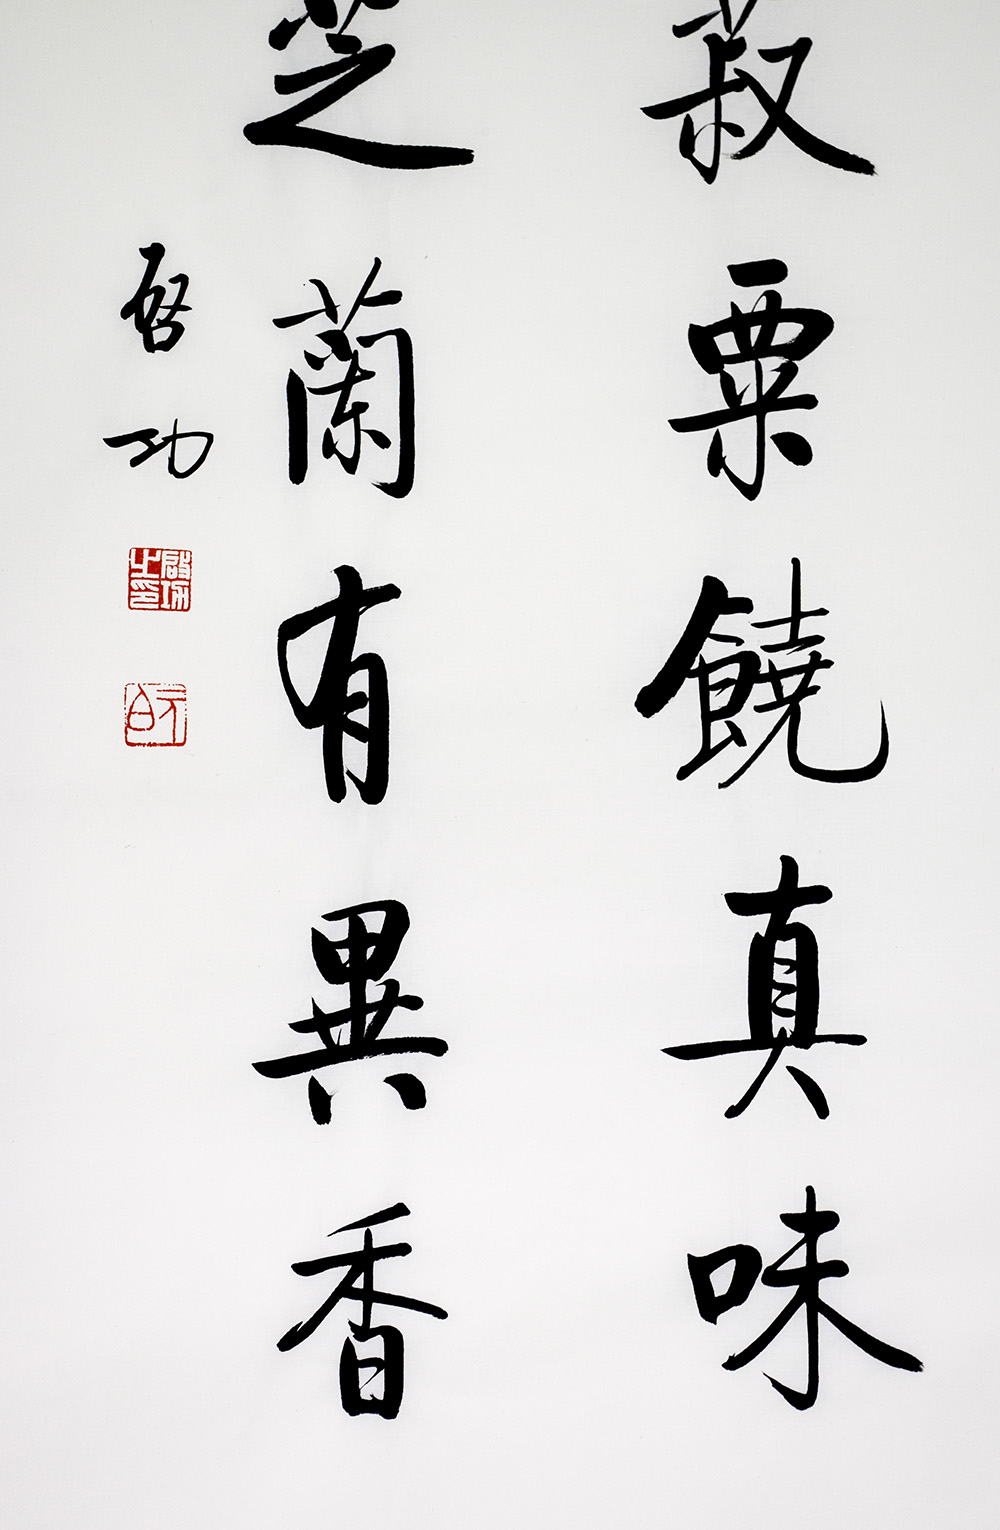 菽粟饒真味
芝蘭有異香
啓功
啟功之印
元白